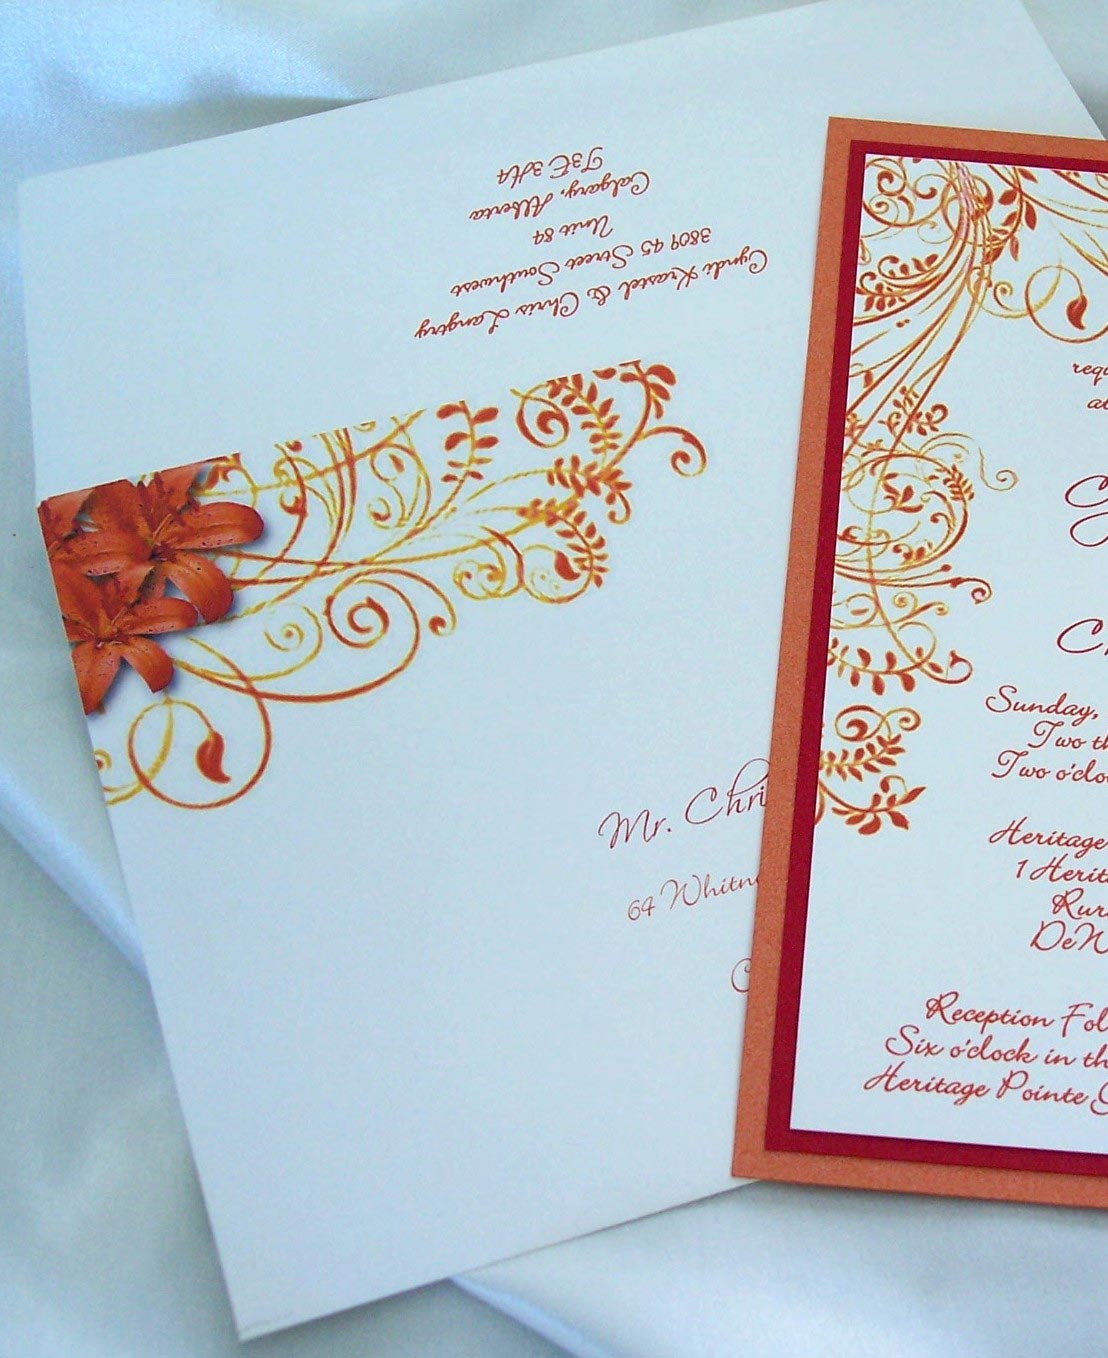 Cyndi Krastel & Chris Langtry
3809 45 Street Southwest
Unit 84
Calgary, Alberta
T3E 3H4
Mr. Chri
64 Whitn
C
requ
Sunday,
Two th
Two o'clo
Heritage
1 Herit
Rur
DeW
Reception Fol
Six o'clock in th
Heritage Pointe G